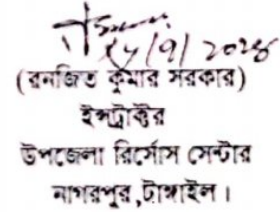 ১৮/৭/২০২৪
(রনজিত কুমার সরকার)
ইন্সট্রাক্টর
উপজেলা রির্সোস সেন্টার
নাগরপুর,টাঙ্গাইল।